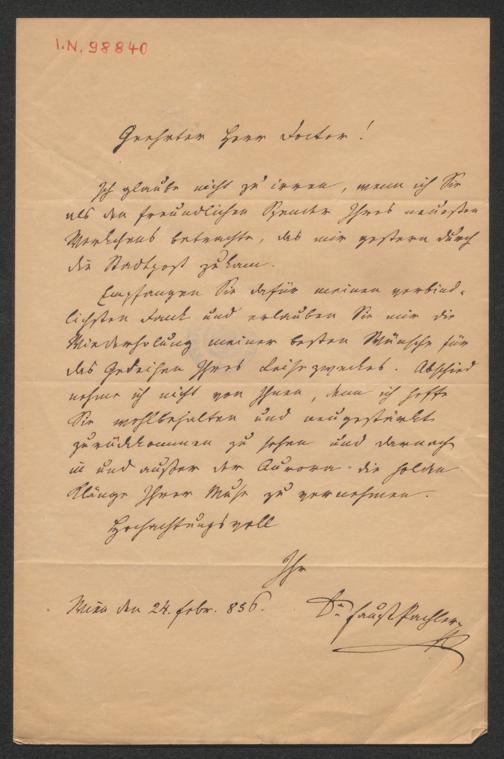 I.N. 98840
Geehrter Herr Doctor!
Ich glaube nicht zu irren, wenn ich Sie
als den freundlichen Spender Ihres neuesten
Werkchens betrachte, das mir gestern durch
die Stadtpost zukam.
Empfangen Sie dafür meinen verbind-
lichsten Dank und erlauben Sie mir die
Wiederholung meiner besten Wünsche für
das Gedeihen Ihres Reisezweckes. Abschied
nehme ich nicht von Ihnen, denn ich hoffe
Sie wohlbehalten und neugestärkt
zurückkommen zu sehen und darnach
in und außer der Aurora die holden
Klänge Ihrer Muse zu vernehmen.
Hochachtungsvoll
Ihr
Wien den 24. Febr. 856. Dr Faust Pachler